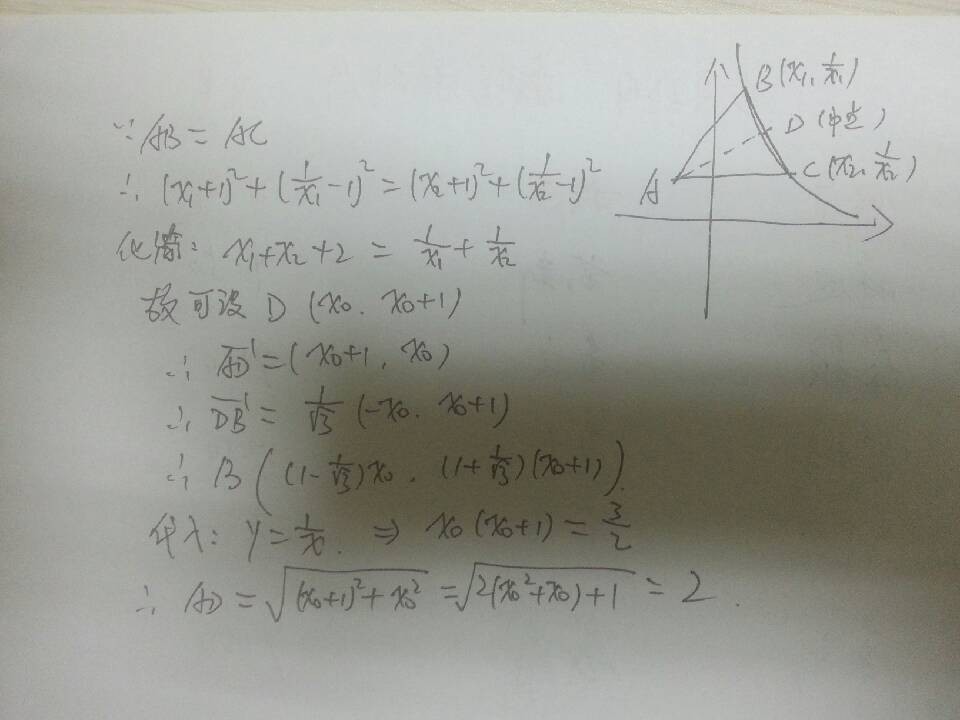 ∵ AB = AC
∴ (x₁+1)² + (1/x₁ - 1)² = (x₂+1)² + (1/x₂ - 1)²
化简: x₁+x₂+2 = 1/x₁ + 1/x₂
故可设 D (x₀, x₀+1)
∴ AD⃗ = (x₀+1, x₀)
∴ DB⃗ = 1/√3 (-x₀, x₀+1)
∴ B ( (1-1/√3)x₀, (1+1/√3)(x₀+1) )
代入: y = 1/x ⇒ x₀(x₀+1) = 3/2
∴ AD = √((x₀+1)²+x₀²) = √(2(x₀²+x₀)+1) = 2.
B (x₁, 1/x₁)
D (中点)
A
C (x₂, 1/x₂)